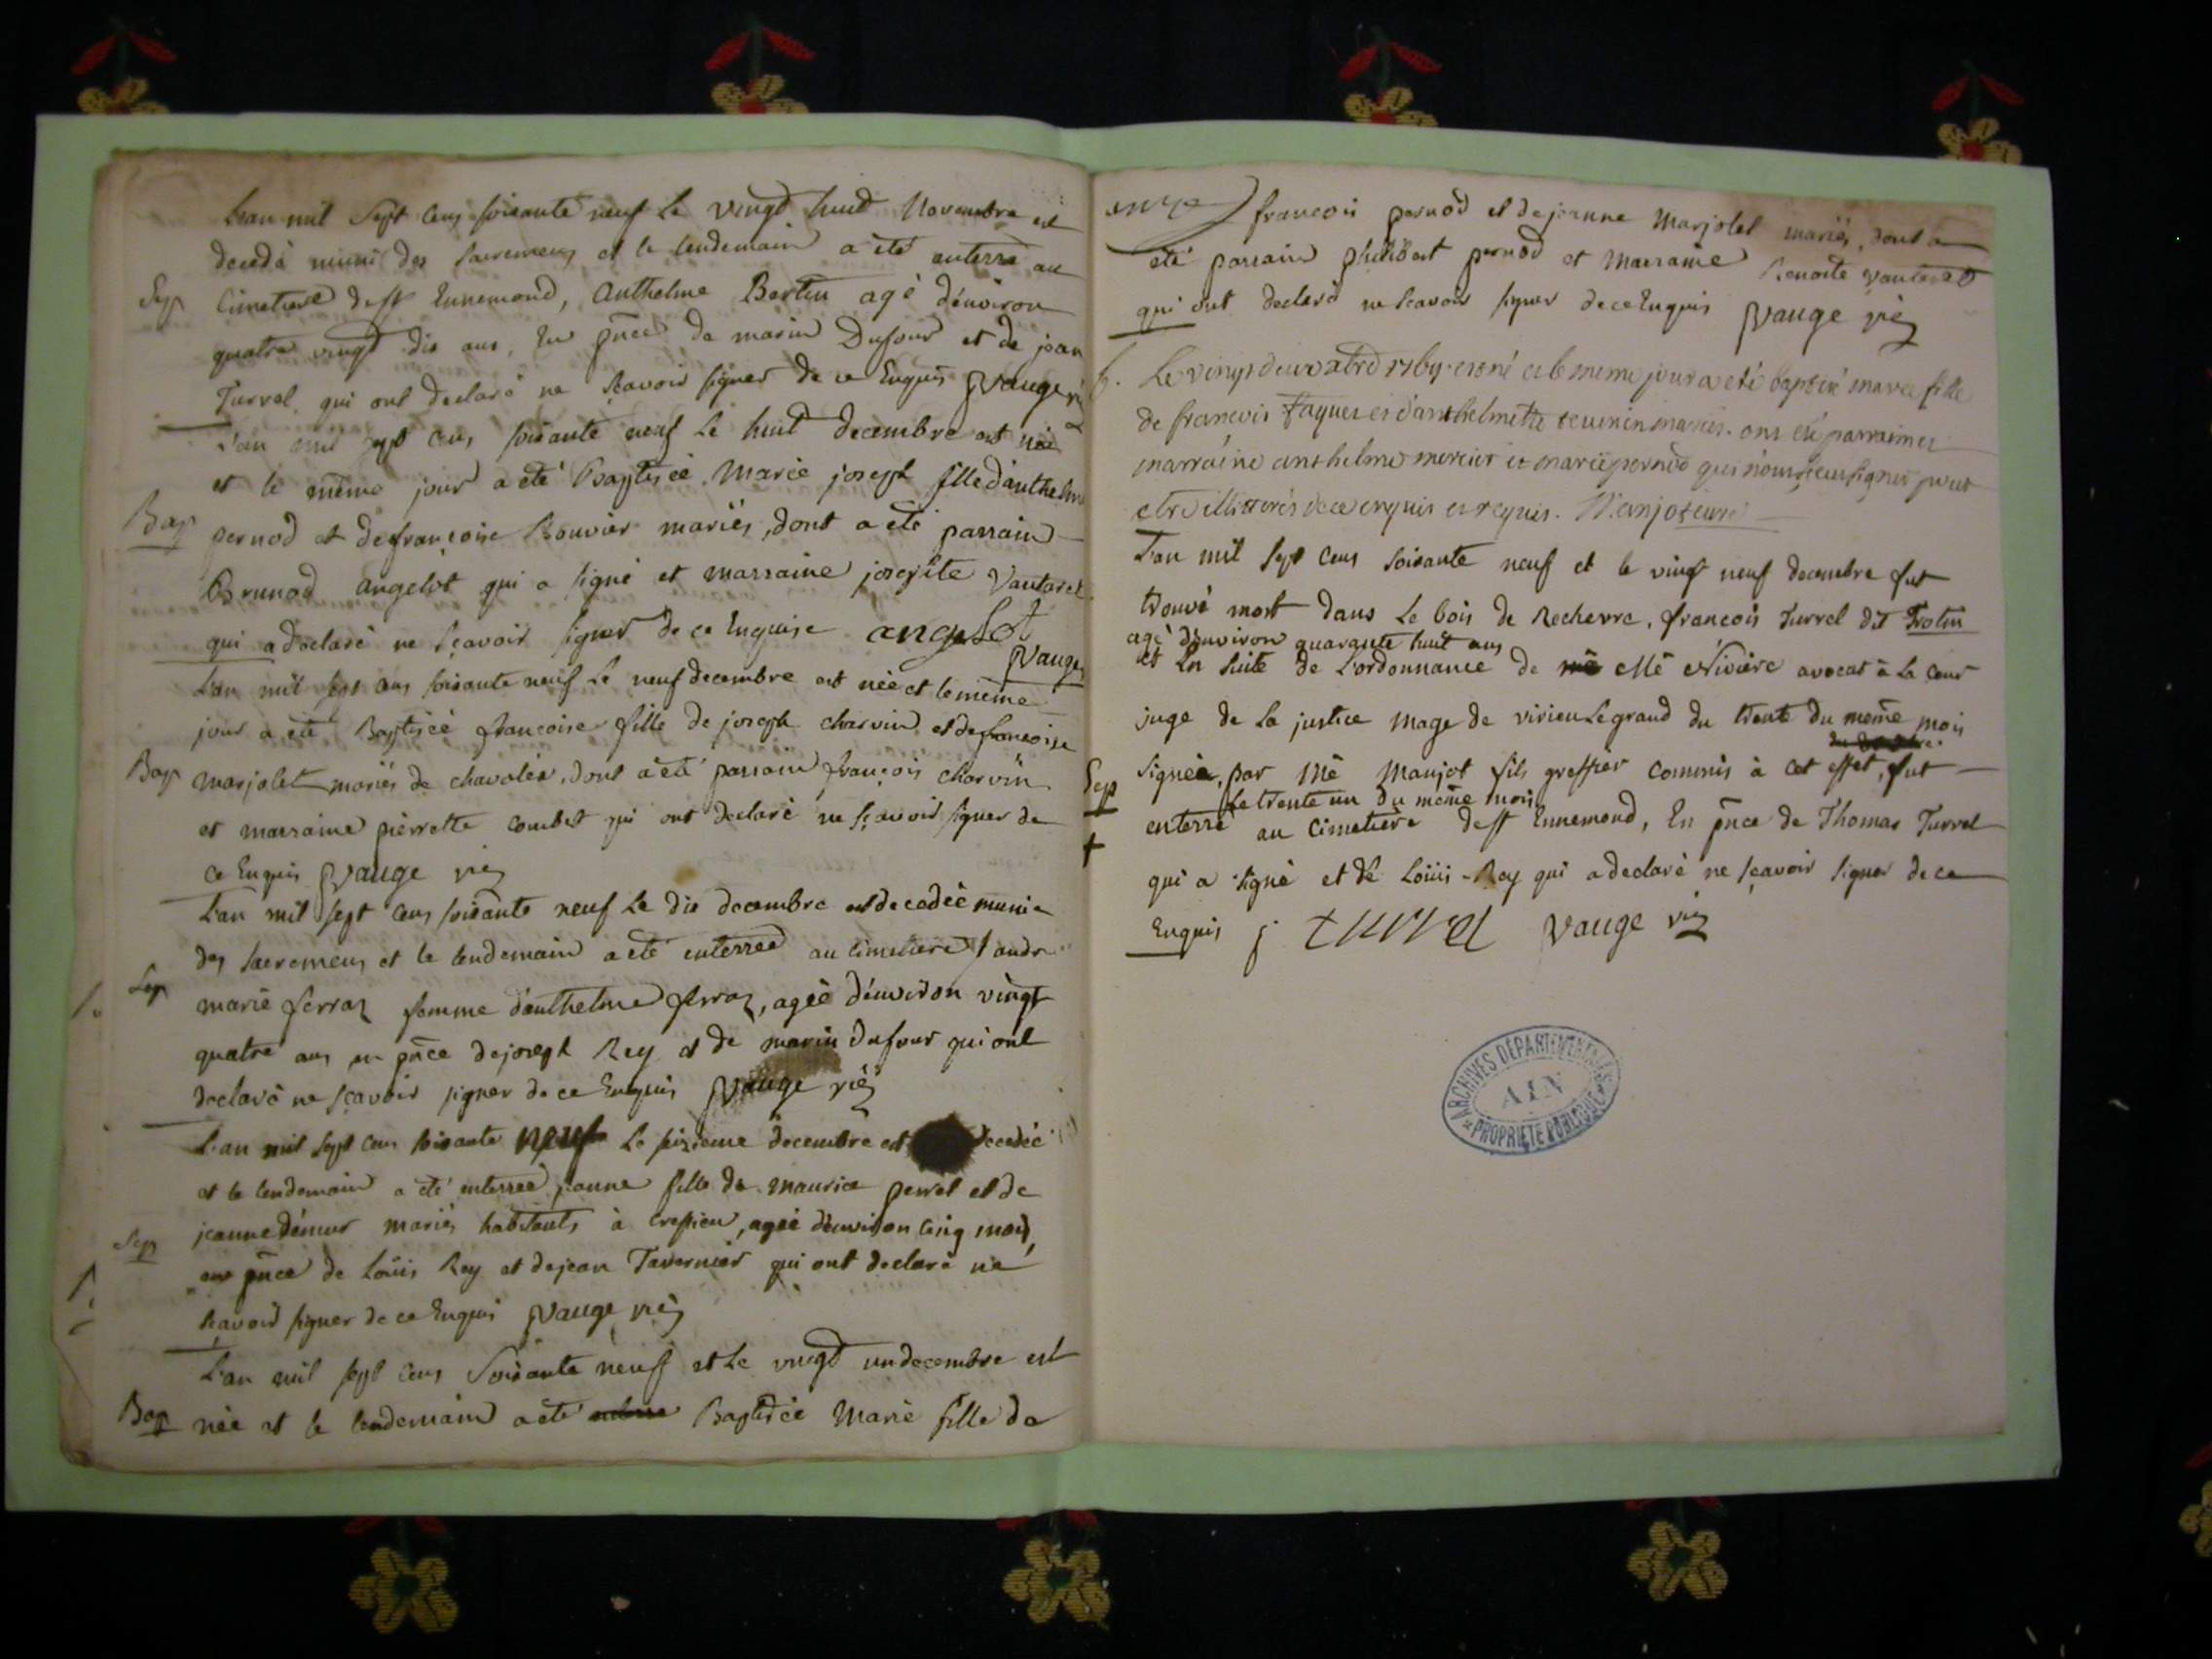 L'an mil Sept Cens soixante neuf Le vingt huit Novembre est
decedé muni des sacremens et le lendemain a été enterré au
Sep Cimetiere de st Ennemond, Anthelme Bertin agé d'environ
quatre vingt dix ans, En pnce de marin Dufour et de jean
Turrel qui ont declaré ne sçavoir signer de ce Enquis Vauge
L'an mil sept cens soixante neuf Le huit decembre est née
et le même jour a été Baptisée Marie joseph fille d'anthelme
Bap pernod et de françoise Bouvier mariés, dont a été parrain
Brunod angelot qui a signé et marraine josephte Vautaret
qui a declaré ne sçavoir signer de ce Enquise angelot
Vauge
L'an mil sept cens soixante neuf Le neuf decembre est née et le même
jour a été Baptisée françoise fille de joseph charvin et de françoise
Bap marjolet mariés de chavoley, dont a été parrain françois charvin
et marraine pierrette combet qui ont declaré ne sçavoir signer de
ce Enquis Vauge vic
L'an mil sept cens soixante neuf Le dix decembre est decedée munie
des sacremens et le lendemain a été enterrée au cimetiere
Sep marie ferraz femme d'anthelme ferraz, agée d'environ vingt
quatre ans en pnce de joseph Rey et de marin Dufour qui ont
declaré ne sçavoir signer de ce Enquis Vauge vic
L'an mil sept cens soixante neuf Le sixieme decembre est decedée
et le lendemain a été enterrée jeanne fille de maurice perret et de
Sep jeanne démur mariés habitants à crepieu, agée d'environ cinq mois,
en pnce de Loüis Rey et de jean Tavernier qui ont declaré ne
sçavoir signer de ce Enquis Vauge vic
L'an mil sept cens Soixante neuf et Le vingt un decembre est
Bap née et le lendemain a été Baptisée Marie fille de
françois pernod et de jeanne Marjolet mariés, dont a
été parrain philibert pernod et Marraine Benoite Vautaret
qui ont declaré ne sçavoir signer de ce Enquis Vauge vic
b. Le vingt deux xbre est né et le meme jour a eté baptisé marie fille
de francois faquer et d'anthelmette mariés. ont été parrain et
marraine anthelme mercier et marie pernod qui n'ont sceu signer pour
etre illitterés de ce enquis et requis.
L'an mil sept cens soixante neuf et le vingt neuf decembre fut
trouvé mort dans Le bois de Rocherre, françois Turrel dit Trotin
agé d'environ quarante huit ans
et En suite de L'ordonnance de Me Nivière avocat à La Cour
juge de la justice mage de virieu Le grand du trente du même mois
Sep Signée, par Mè Maujot fils greffier commis à cet effet, fut
Le trente un du même mois
+ enterré au cimetiere de st Ennemond, En pnce de Thomas Turrel
qui a signé et de Loüis Rey qui a declaré ne sçavoir signer de ce
Enquis j turrel Vauge vic
ARCHIVES DÉPARTEMENTALES
AIN
PROPRIÉTÉ PUBLIQUE